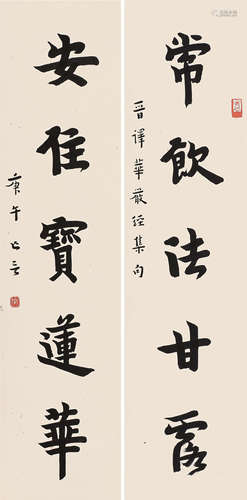 常飲法甘露
晋译華嚴经集句
安住寶蓮華
庚午